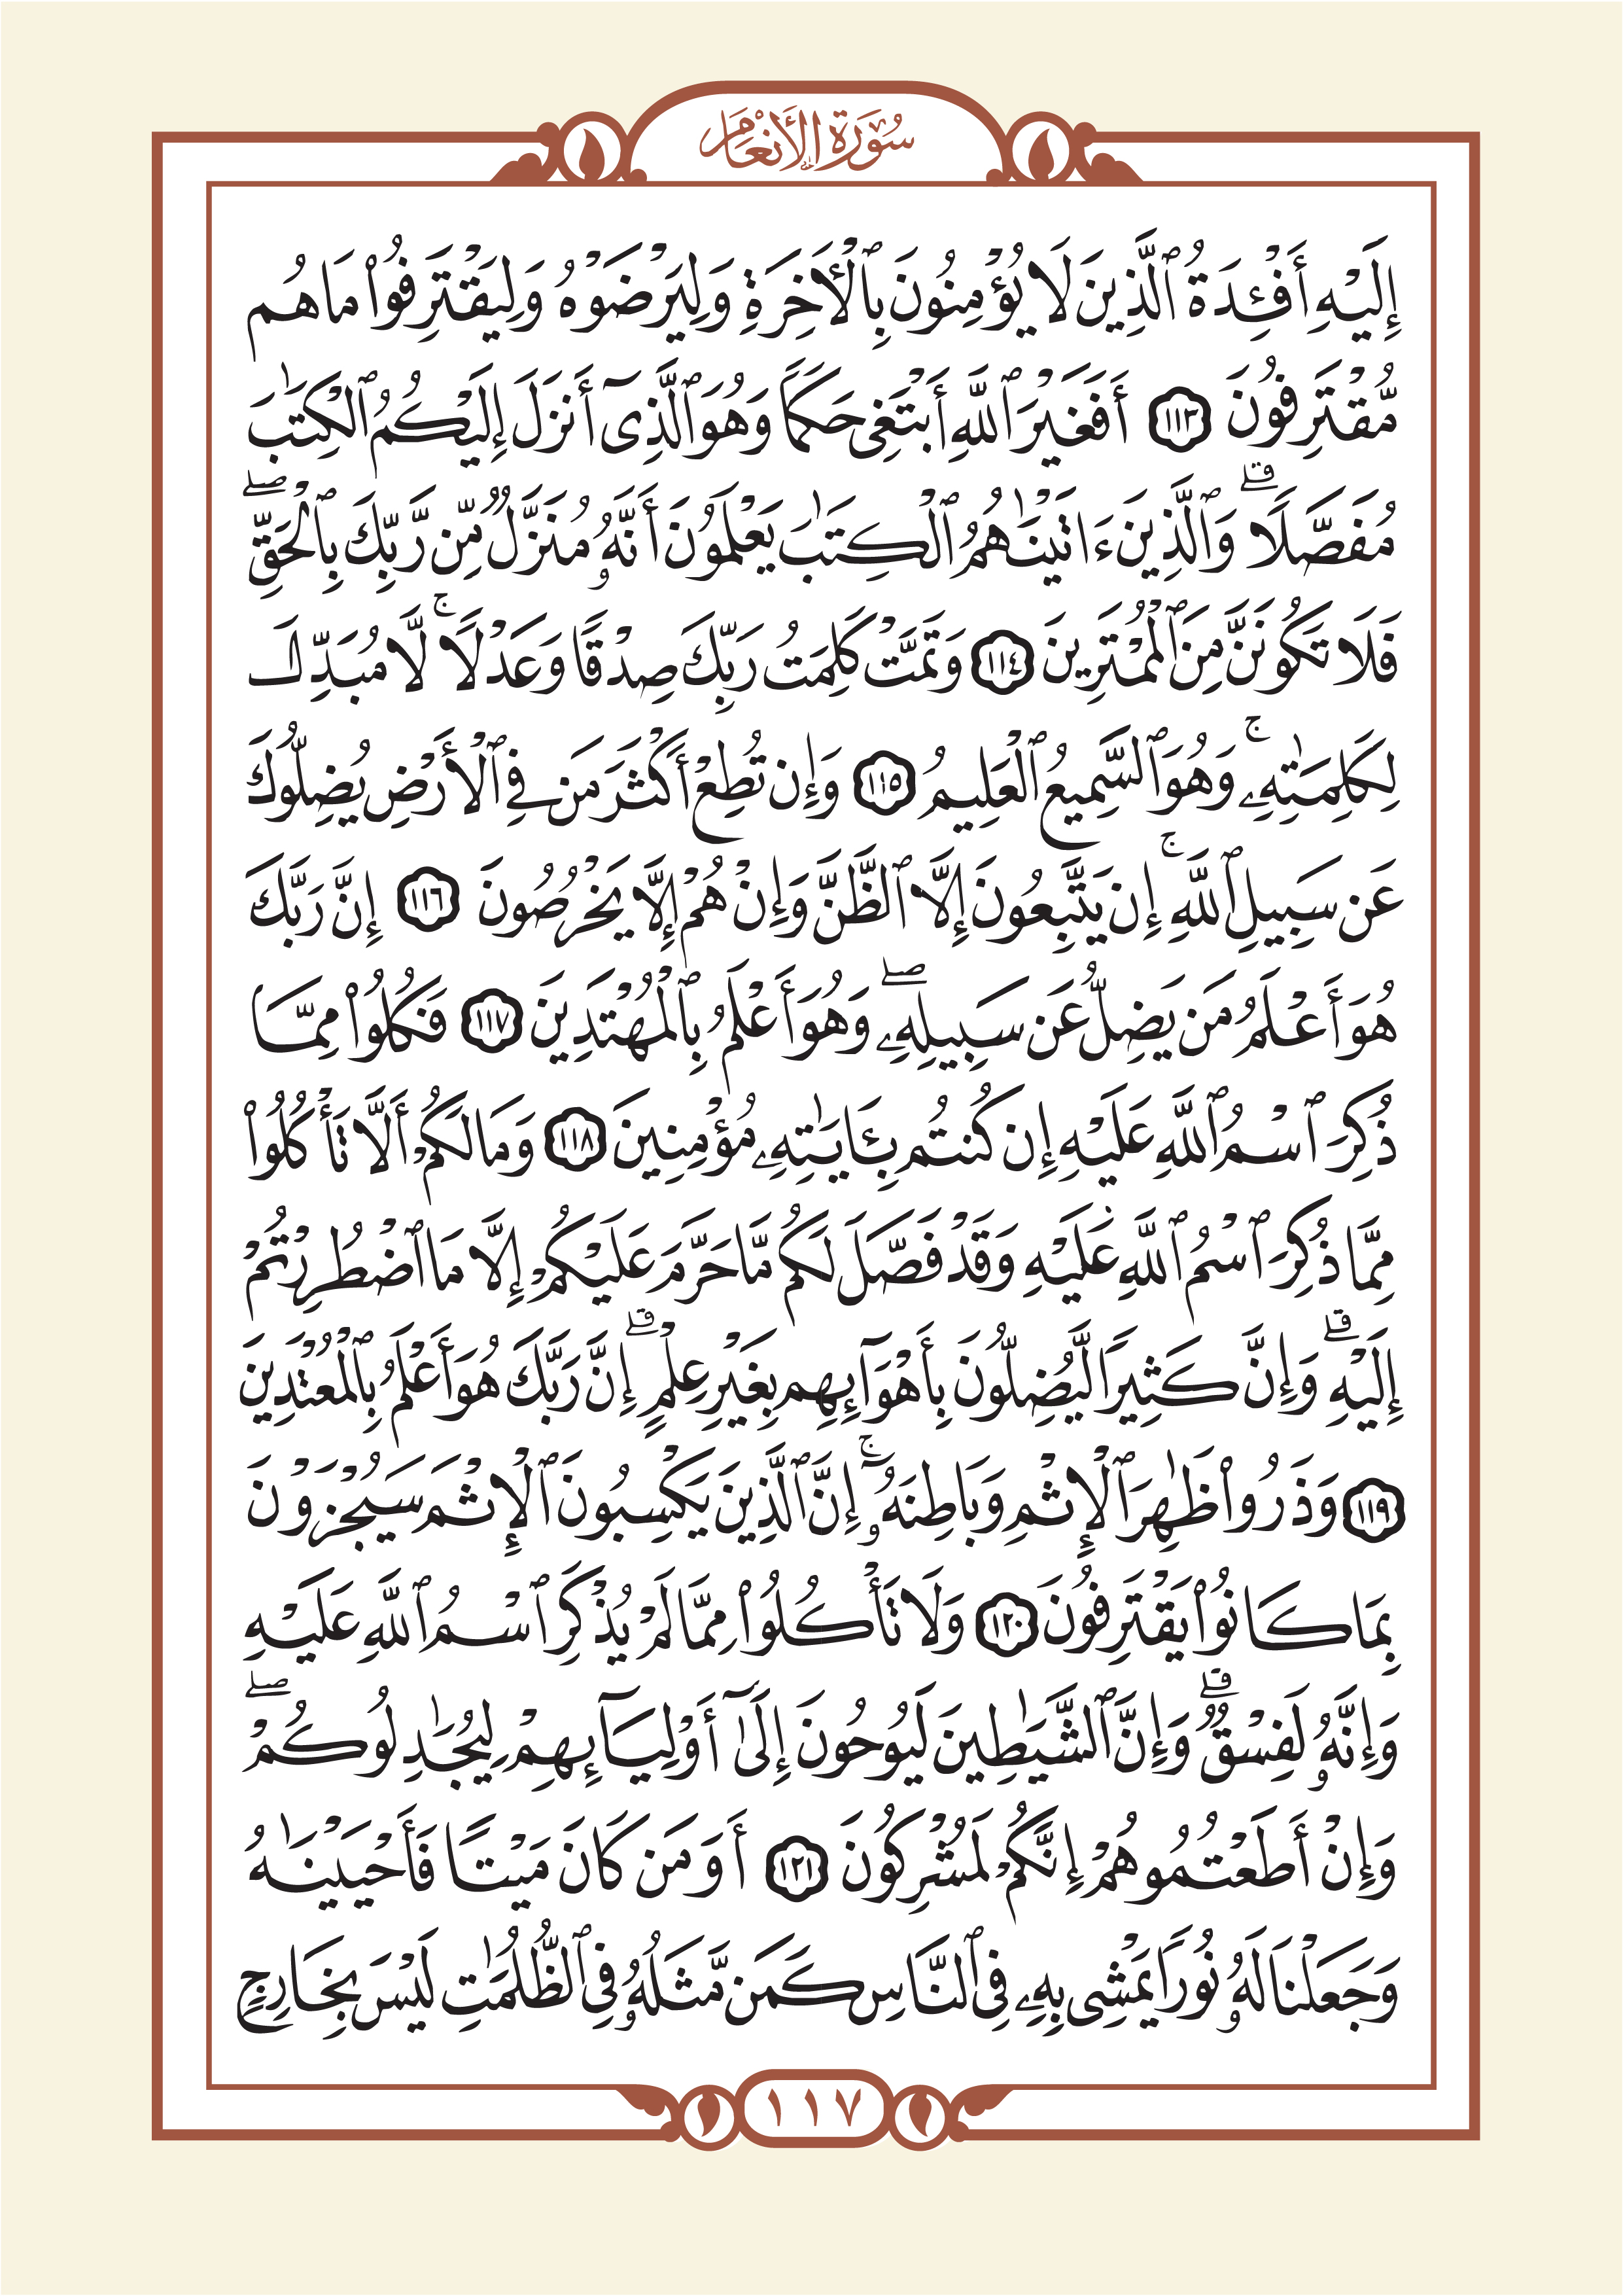 سُورَةُ الأَنْعَامِ
إِلَيْهِ أَفْـِٔدَةُ ٱلَّذِينَ لَا يُؤْمِنُونَ بِٱلْأَخِرَةِ وَلِيَرْضَوْهُ وَلِيَقْتَرِفُوا۟ مَا هُم
مُّقْتَرِفُونَ ١١٣ أَفَغَيْرَ ٱللَّهِ أَبْتَغِى حَكَمًا وَهُوَ ٱلَّذِىٓ أَنزَلَ إِلَيْكُمُ ٱلْكِتَٰبَ
مُفَصَّلًا ۗ وَٱلَّذِينَ ءَاتَيْنَٰهُمُ ٱلْكِتَٰبَ يَعْلَمُونَ أَنَّهُۥ مُنَزَّلٌ مِّن رَّبِّكَ بِٱلْحَقِّ ۖ
فَلَا تَكُونَنَّ مِنَ ٱلْمُمْتَرِينَ ١١٤ وَتَمَّتْ كَلِمَتُ رَبِّكَ صِدْقًا وَعَدْلًا ۚ لَّا مُبَدِّلَ
لِكَلِمَٰتِهِۦ ۚ وَهُوَ ٱلسَّمِيعُ ٱلْعَلِيمُ ١١٥ وَإِن تُطِعْ أَكْثَرَ مَن فِى ٱلْأَرْضِ يُضِلُّوكَ
عَن سَبِيلِ ٱللَّهِ ۚ إِن يَتَّبِعُونَ إِلَّا ٱلظَّنَّ وَإِنْ هُمْ إِلَّا يَخْرُصُونَ ١١٦ إِنَّ رَبَّكَ
هُوَ أَعْلَمُ مَن يَضِلُّ عَن سَبِيلِهِۦ ۖ وَهُوَ أَعْلَمُ بِٱلْمُهْتَدِينَ ١١٧ فَكُلُوا۟ مِمَّا
ذُكِرَ ٱسْمُ ٱللَّهِ عَلَيْهِ إِن كُنتُم بِـَٔايَٰتِهِۦ مُؤْمِنِينَ ١١٨ وَمَا لَكُمْ أَلَّا تَأْكُلُوا۟
مِمَّا ذُكِرَ ٱسْمُ ٱللَّهِ عَلَيْهِ وَقَدْ فَصَّلَ لَكُم مَّا حَرَّمَ عَلَيْكُمْ إِلَّا مَا ٱضْطُرِرْتُمْ
إِلَيْهِ ۗ وَإِنَّ كَثِيرًا لَّيُضِلُّونَ بِأَهْوَآئِهِم بِغَيْرِ عِلْمٍ ۗ إِنَّ رَبَّكَ هُوَ أَعْلَمُ بِٱلْمُعْتَدِينَ
١١٩ وَذَرُوا۟ ظَٰهِرَ ٱلْإِثْمِ وَبَاطِنَهُۥٓ ۚ إِنَّ ٱلَّذِينَ يَكْسِبُونَ ٱلْإِثْمَ سَيُجْزَوْنَ
بِمَا كَانُوا۟ يَقْتَرِفُونَ ١٢٠ وَلَا تَأْكُلُوا۟ مِمَّا لَمْ يُذْكَرِ ٱسْمُ ٱللَّهِ عَلَيْهِ
وَإِنَّهُۥ لَفِسْقٌ ۗ وَإِنَّ ٱلشَّيَٰطِينَ لَيُوحُونَ إِلَىٰٓ أَوْلِيَآئِهِمْ لِيُجَٰدِلُوكُمْ ۖ
وَإِنْ أَطَعْتُمُوهُمْ إِنَّكُمْ لَمُشْرِكُونَ ١٢١ أَوَمَن كَانَ مَيْتًا فَأَحْيَيْنَٰهُ
وَجَعَلْنَا لَهُۥ نُورًا يَمْشِى بِهِۦ فِى ٱلنَّاسِ كَمَن مَّثَلُهُۥ فِى ٱلظُّلُمَٰتِ لَيْسَ بِخَارِجٍ
١١٧